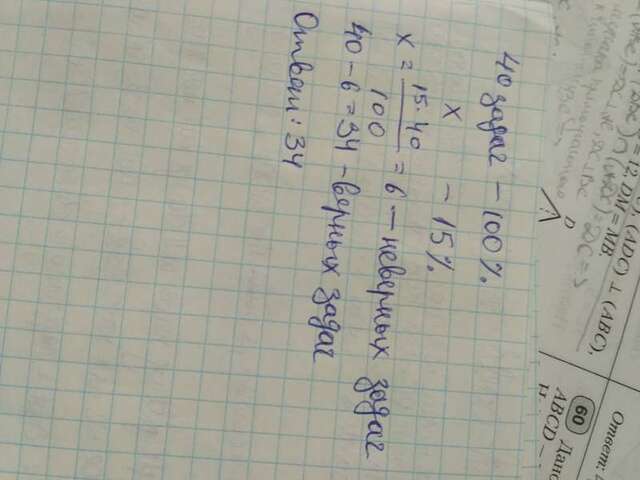 40 задач - 100%
x - 15%
x = 15·40 / 100 = 6 - неверных задач
40 - 6 = 34 - верных задач
Ответ: 34
(ADC) ⊥ (ABC).
= 12, DM = MB.
D
Ответ:
60 Дано
ABCD -